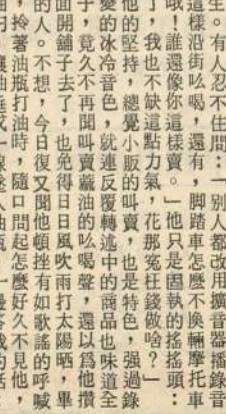 生。有人忍不住問:「別人都改用擴音器播錄音
這樣沿街吆喝,還有,脚踏車怎麼不換輛摩托車
哦!誰還像你這樣賣。」他只是固執的搖搖頭:
了,我也不缺這點力氣,花那寃枉錢做啥?」
他的堅持,總覺小販的叫賣,也是特色,強過錄
變的冰冷音色,就連反覆轉述中的商品也味道全
子,竟久不再聞叫賣蔴油的吆喝聲,還以為他攢
面開舖子去了,也免得日日風吹雨打太陽晒,畢
的人。不想,今日復又聞他頓挫有如歌謠的呼喊
,拎著油瓶打油時,隨口問起怎麼好久不見他,